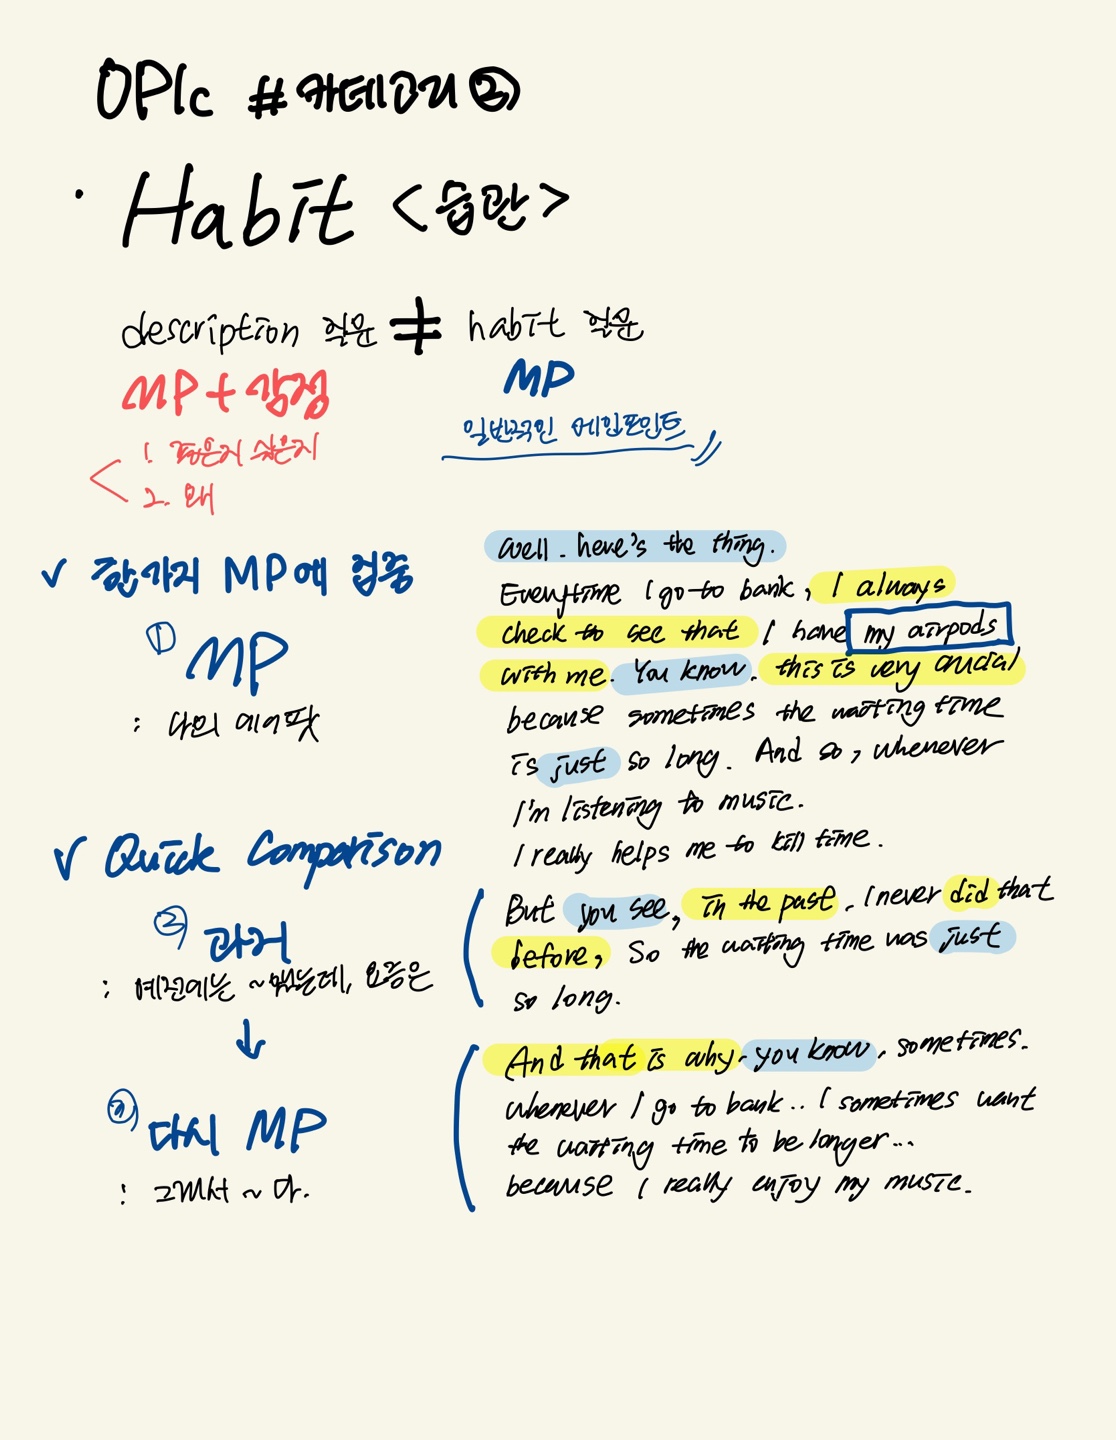 OPIc #카테고리②
· Habit <습관>
description 질문 ≠ habit 질문
MP + 감정
1. 좋은지 싫은지
2. 왜
MP
일반적인 메인포인트
✓ 한가지 MP에 집중
① MP
: 나의 에어팟
✓ Quick Comparison
② 과거
: 예전에는 ~했는데, 요즘은
↓
다시 MP
: 그래서 ~ 다.
Well. here's the thing.
Everytime I go to bank, I always
check to see that I have my airpods
with me. You know. this is very crucial
because sometimes the waiting time
is just so long. And so, whenever
I'm listening to music.
I really helps me to kill time.
But you see, in the past. I never did that
before, So the waiting time was just
so long.
And that is why. you know. sometimes.
whenever I go to bank.. I sometimes want
the waiting time to be longer...
because I really enjoy my music.